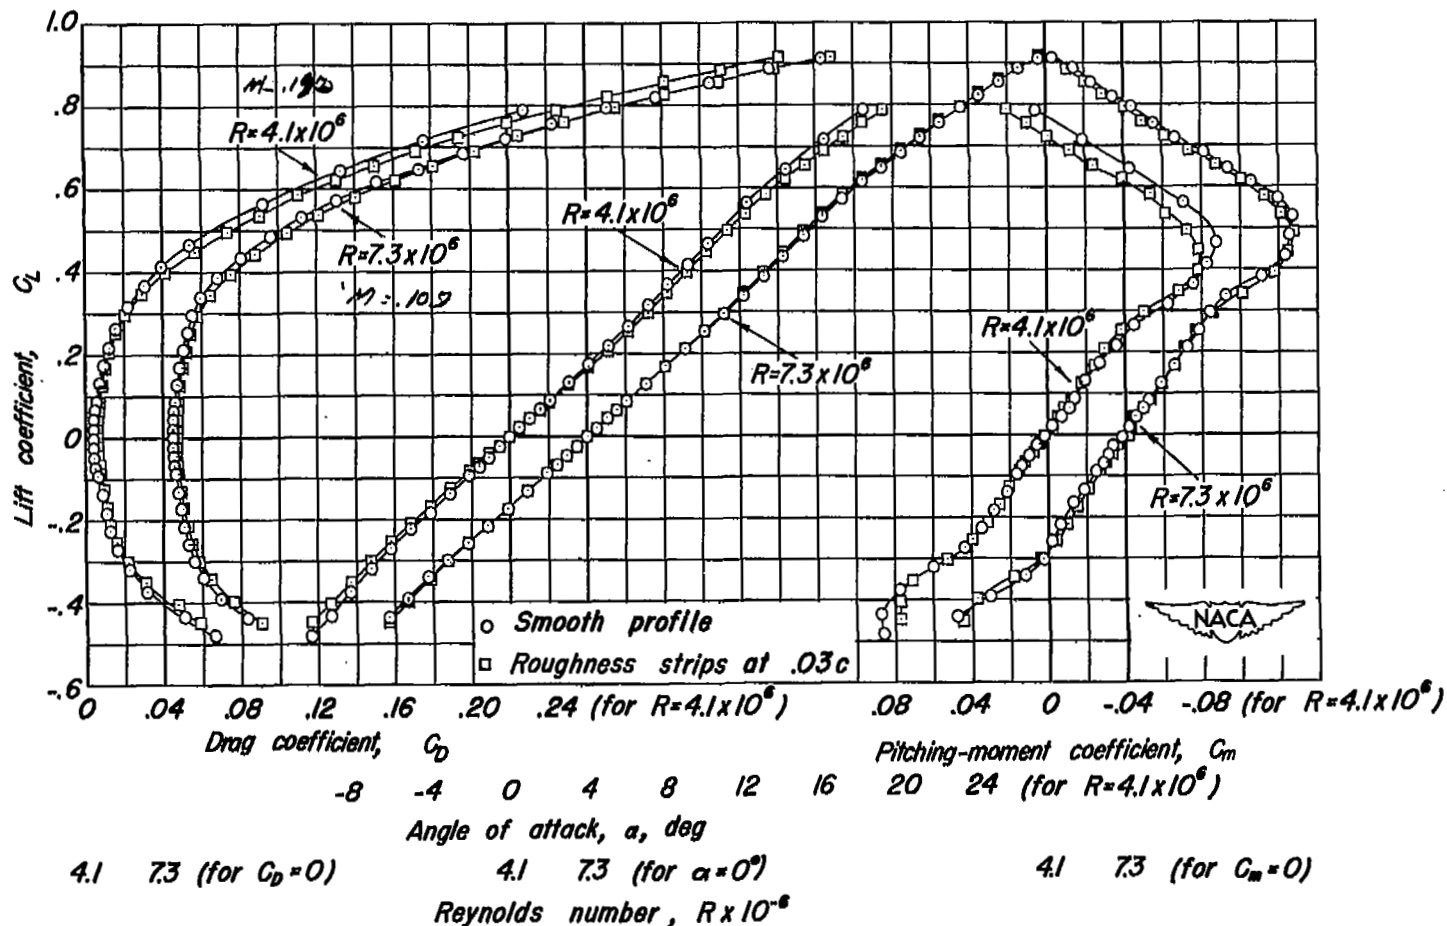 1.0
.8
.6
.4
.2
0
-.2
-.4
-.6
Lift coefficient, C_L
R=4.1x10⁶
R=7.3x10⁶
M=.10
R=4.1x10⁶
R=7.3x10⁶
R=4.1x10⁶
R=7.3x10⁶
○ Smooth profile
□ Roughness strips at .03c
NACA
0 .04 .08 .12 .16 .20 .24 (for R=4.1x10⁶) .08 .04 0 -.04 -.08 (for R=4.1x10⁶)
Drag coefficient, C_D Pitching-moment coefficient, C_m
-8 -4 0 4 8 12 16 20 24 (for R=4.1x10⁶)
Angle of attack, α, deg
4.1 7.3 (for C_D=0) 4.1 7.3 (for α=0°) 4.1 7.3 (for C_m=0)
Reynolds number, R x 10⁻⁶